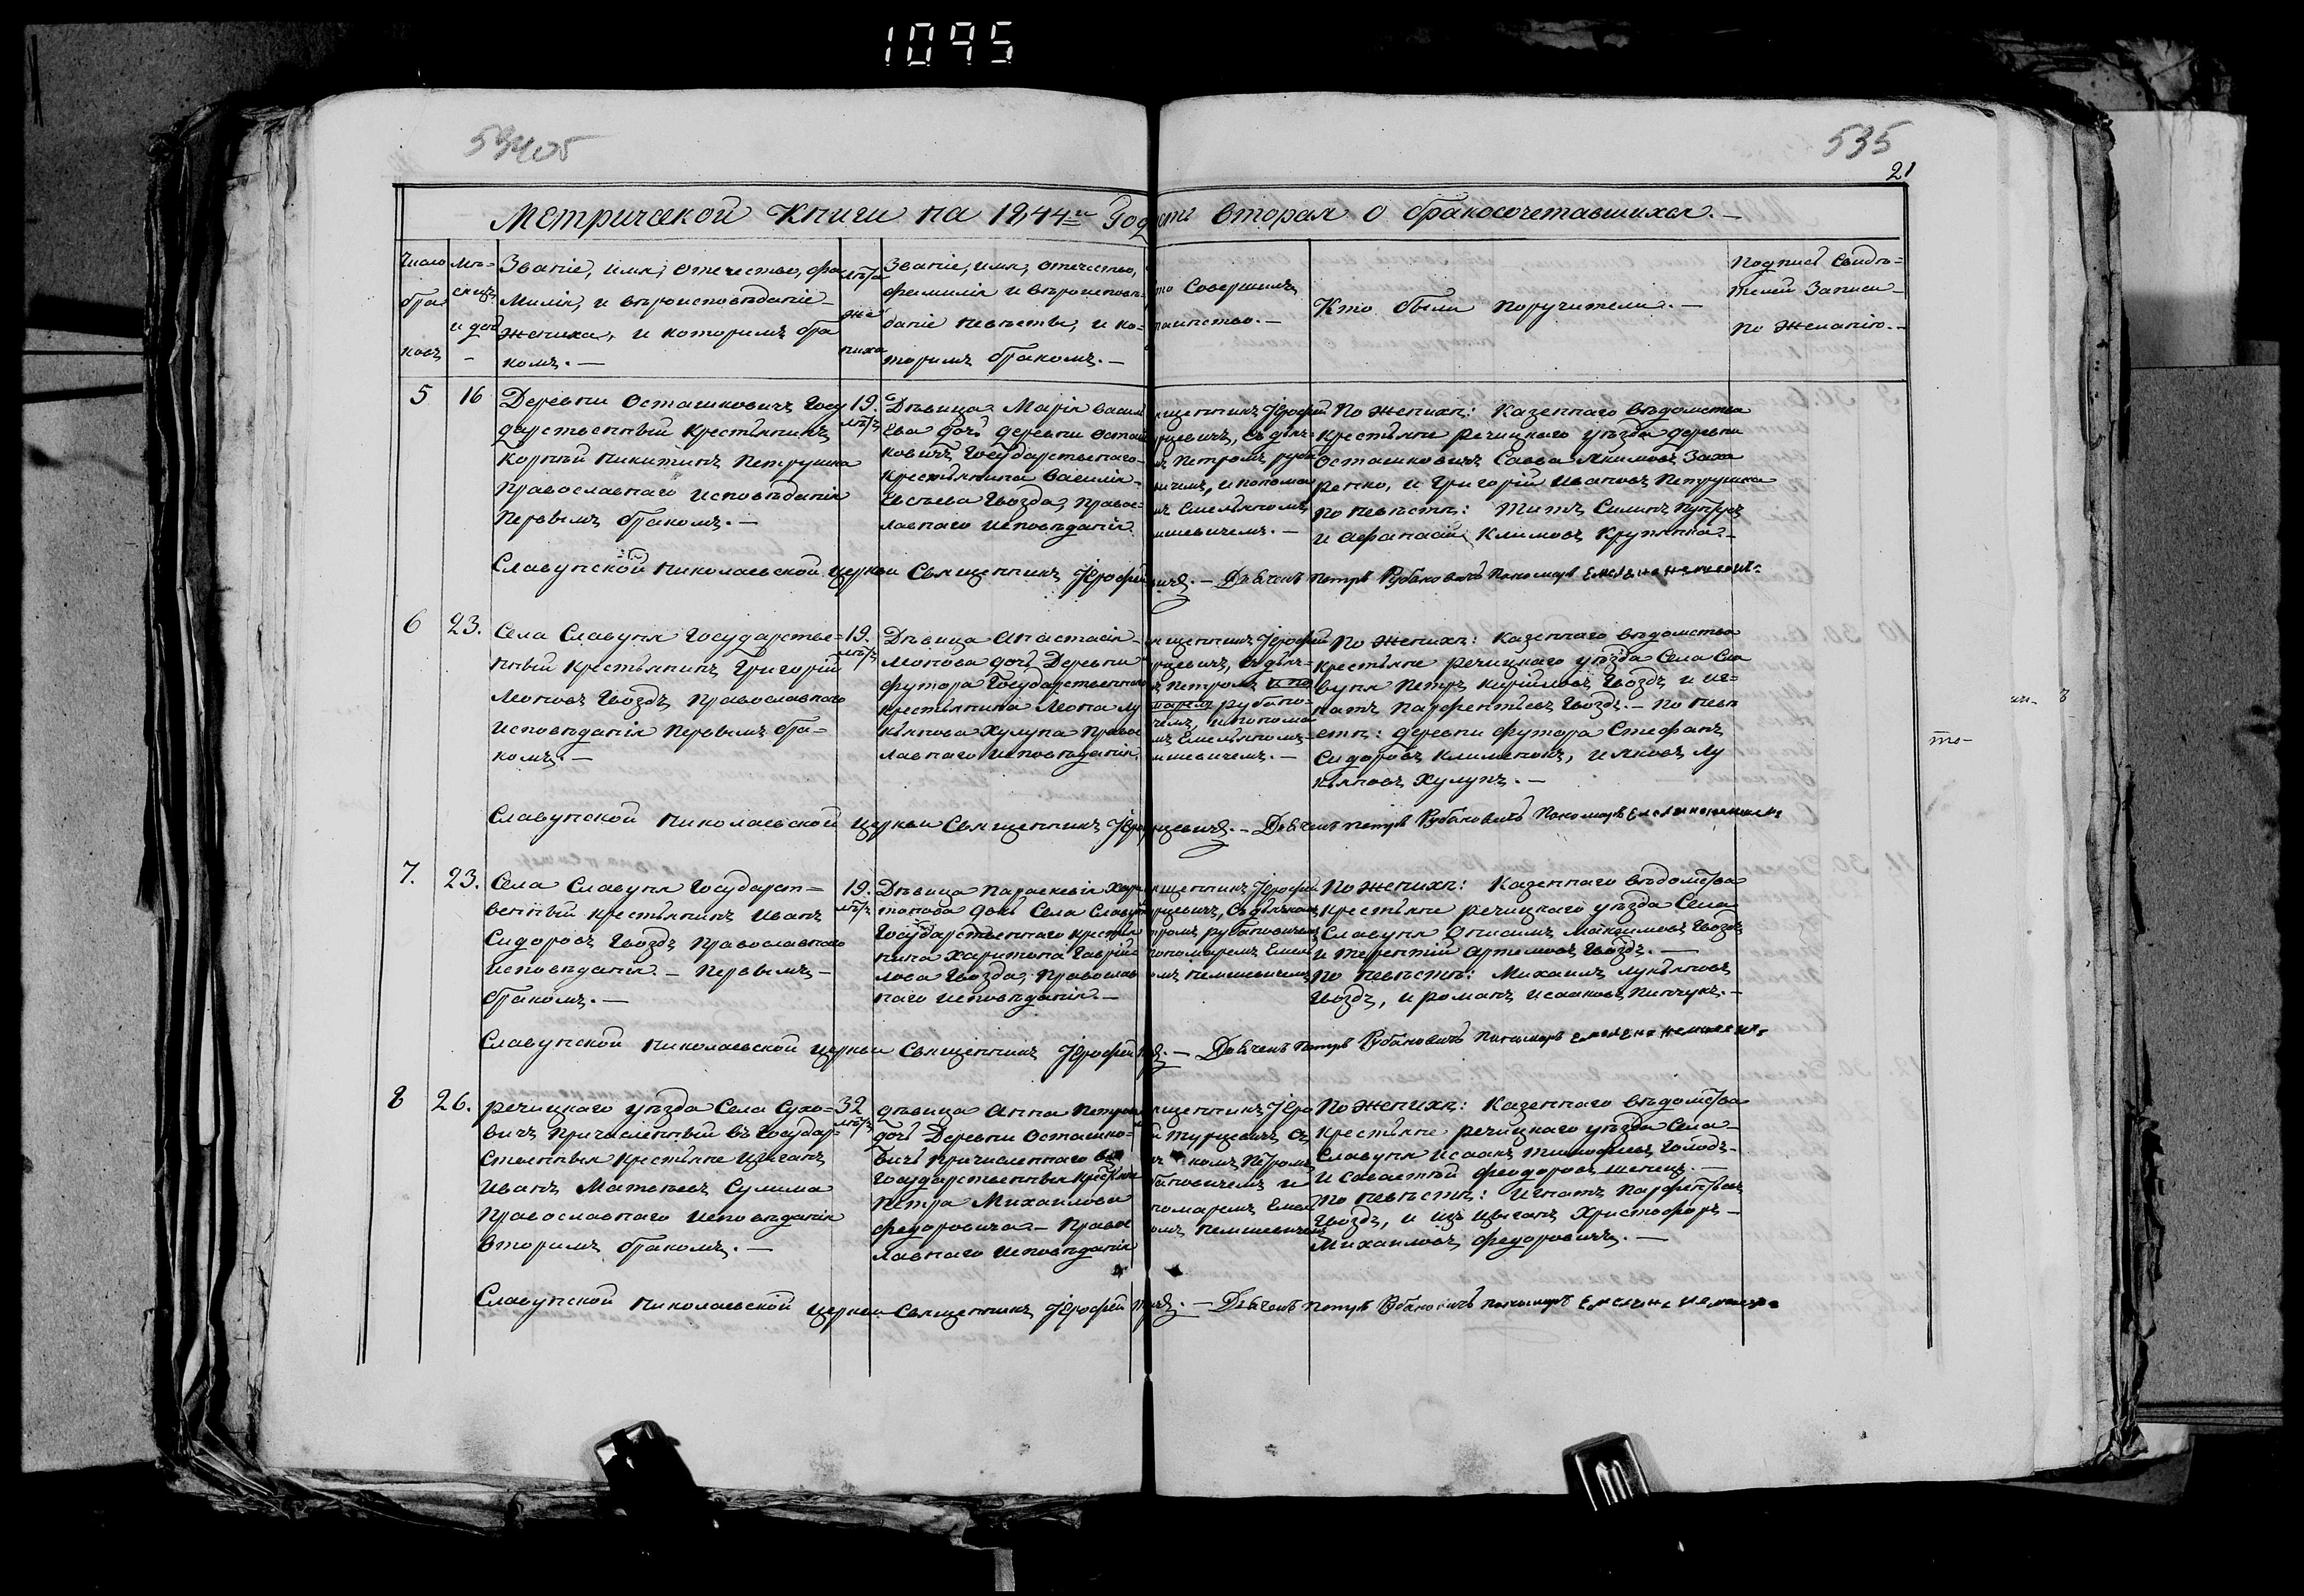 1095
535
21
Метрической Книги на 1844й Годъ
сть вторая о бракосочетавшихся. —
Число бра ковъ
Мѣ= сяцъ и дни
Званіе, имя, отечество, фа
милія, и вѣроисповѣданіе
жениха, и которымъ бра
комъ. —
Лѣта же ниха
Званіе, имя, отечество,
фамилія и вѣроисповѣ=
даніе невѣсты, и ко=
торымъ бракомъ. —
то Совершалъ
таинство. —
Кто были поручители. —
Подпись свидѣ=
телей Записи
по желанію. —
5
16
Деревни Осташковичъ Госу
дарственный крестьянинъ
Корній Никитинъ Петрушка
Православнаго исповѣданія
Первымъ бракомъ. —
19.
лѣтъ
Дѣвица Марія Васил
ева дочь деревни Осташ
ковичъ Государственнаго
крестьянина Василія
Гвозда, Правос=
лавнаго исповѣданія
щенникъ Іерофей
рцевичъ, съ дья=
мъ Петромъ руба
вичемъ, и понома
мъ Емельяномъ
мшевичемъ. —
По женихѣ: Казеннаго вѣдомства
крестьяне речицкаго уѣзда деревни
Осташковичъ Савва Якимовъ Заха
ренко, и Григорій Ивановъ Петрушка
По невѣстѣ: Титъ Силинъ
и Афанасій Климовъ
Славунской Николаевской Церкви Священникъ Іерофей
— Дьячекъ Петръ Рубановичъ Пономарь
6
23.
Села Славуня Государстве=
нный крестьянинъ Григорій
Леоновъ Гвоздъ, Православнаго
исповѣданія Первымъ бра=
комъ. —
19.
лѣтъ
Дѣвица Анастасія
Леонова дочь Деревни
футора Государственнаго
крестьянина Леона Лу
кьянова Хулупа Правос
лавнаго исповѣданія.
щенникъ Іерофей
рцевичъ, съ дья=
ъ Петромъ и по
маремъ рубано=
чемъ, и понома
мъ Емельяномъ
мшевичемъ. —
По женихѣ: Казеннаго вѣдомства
крестьяне речицкаго уѣзда Села Сла
вуня Петръ Кириловъ Гвоздъ и иг=
натъ Парфентьевъ Гвоздъ. — По невѣ
стѣ: деревни футора Стефанъ
Сидоровъ Клименокъ, и Яковъ Лу
кьяновъ Хулупъ. —
Славунской Николаевской Церкви Священникъ Іеро
рцевичъ. — Дьячекъ Петръ Рубановичъ Пономарь
7.
23.
Села Славуня Государст=
венный крестьянинъ Иванъ
Сидоровъ Гвоздъ Православнаго
исповѣданія — Первымъ
бракомъ. —
19.
лѣтъ
Дѣвица Параскевія Хари
тонова дочь Села Славуня
Государственнаго крестья
нина Харитона Гаврии
лова Гвозда, Православ
наго исповѣданія. —
щенникъ Іерофей
рцевичъ, съ дьячкомъ
тромъ рубановичемъ
пономаремъ Емел
омъ Немшевичемъ
По женихѣ: Казеннаго вѣдомства
Крестьяне речицкаго уѣзда Села
Славуня Онисимъ Максимовъ Гвоздъ
и Терентій Артемовъ Гвоздъ. —
По невѣстѣ: Михаилъ Лукьяновъ
Гвоздъ, и романъ Исааковъ Пинчукъ. —
Славунской Николаевской Церкви Священникъ Іерофей
— Дьячекъ Петръ Рубановичъ Пономарь
8
26.
речицкаго уѣзда Села Сухо=
вичъ Причисленный въ Государ=
ственныя Крестьяне Цыганъ
Иванъ Матвѣевъ Сулима
Православнаго исповѣданія
вторымъ бракомъ. —
32
лѣтъ
дѣвица Анна Петрова
дочь Деревни Осташко=
вичъ причисленнаго въ
Государственныя крестьяне
Петра Михаилова
федоровича — Правос
лавнаго исповѣданія
щенникъ Іеро
й Турцевичъ съ
комъ Петромъ
бановичемъ и
номаремъ Емел
омъ Немшевичемъ
По женихѣ: Казеннаго вѣдомства
Крестьяне речицкаго уѣзда Села
Славуня Исаакъ Тимофеевъ Голодъ
и Савастѣй Феодоровъ Шевецъ. —
По невѣстѣ: Игнатъ Парфентьевъ
Гвоздъ, и изъ Цыганъ Христофоръ
Михаиловъ федоровичъ. —
Славунской Николаевской Церкви Священникъ Іерофей
— Дьячекъ Петръ Рубановичъ пономарь